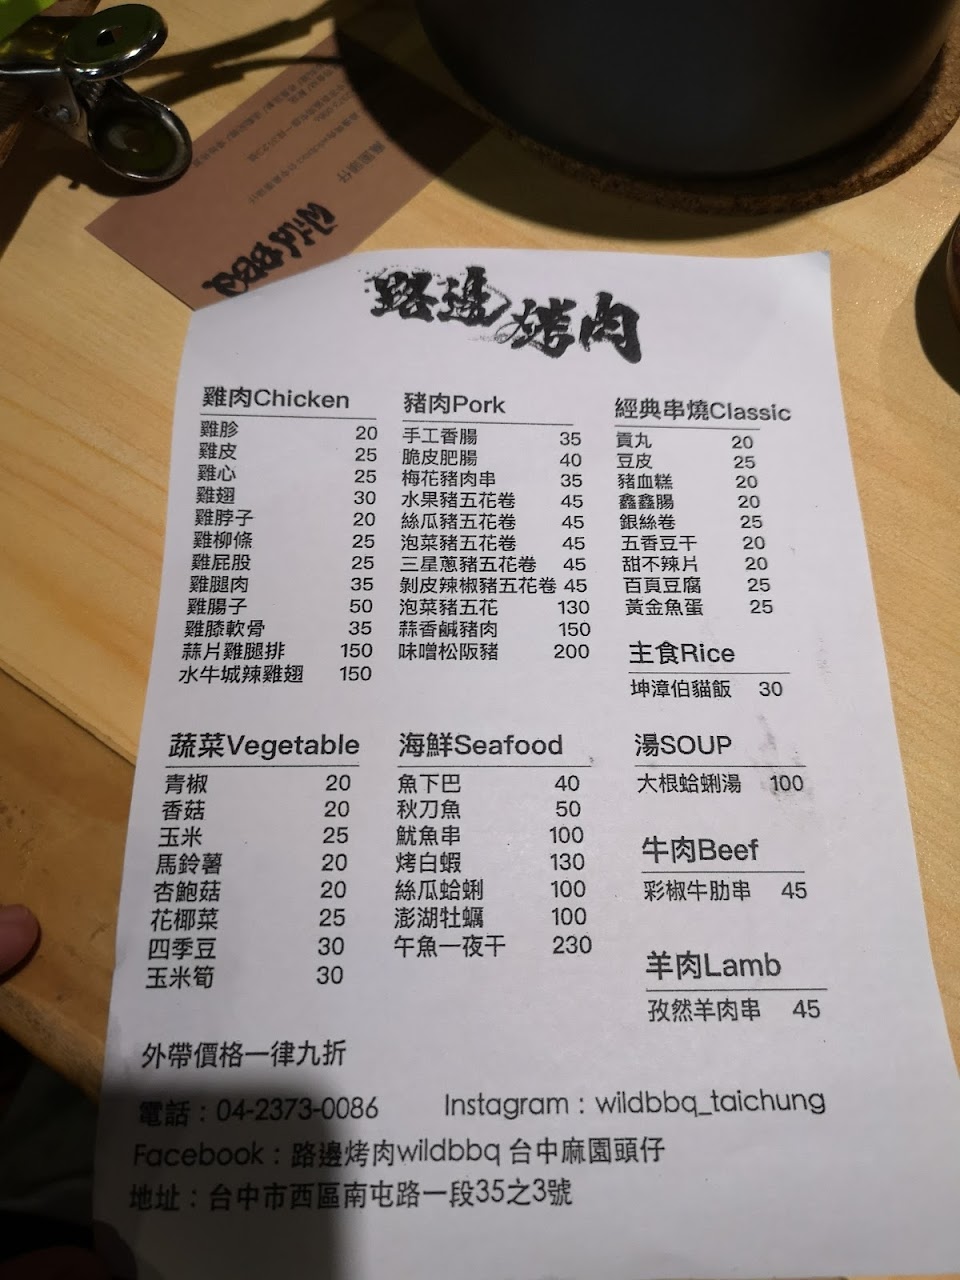 Wild BBQ
路邊烤肉
雞肉Chicken
雞胗 20
雞皮 25
雞心 25
雞翅 30
雞脖子 20
雞柳條 25
雞屁股 25
雞腿肉 35
雞腸子 50
雞膝軟骨 35
蒜片雞腿排 150
水牛城辣雞翅 150
豬肉Pork
手工香腸 35
脆皮肥腸 40
梅花豬肉串 35
水果豬五花卷 45
絲瓜豬五花卷 45
泡菜豬五花卷 45
三星蔥豬五花卷 45
剝皮辣椒豬五花卷 45
泡菜豬五花 130
蒜香鹹豬肉 150
味噌松阪豬 200
經典串燒Classic
貢丸 20
豆皮 25
豬血糕 20
鑫鑫腸 20
銀絲卷 25
五香豆干 20
甜不辣片 20
百頁豆腐 25
黃金魚蛋 25
主食Rice
坤漳伯貓飯 30
蔬菜Vegetable
青椒 20
香菇 20
玉米 25
馬鈴薯 20
杏鮑菇 20
花椰菜 25
四季豆 30
玉米筍 30
海鮮Seafood
魚下巴 40
秋刀魚 50
魷魚串 100
烤白蝦 130
絲瓜蛤蜊 100
澎湖牡蠣 100
午魚一夜干 230
湯SOUP
大根蛤蜊湯 100
牛肉Beef
彩椒牛肋串 45
羊肉Lamb
孜然羊肉串 45
外帶價格一律九折
電話：04-2373-0086 Instagram：wildbbq_taichung
Facebook：路邊烤肉wildbbq 台中麻園頭仔
地址：台中市西區南屯路一段35之3號